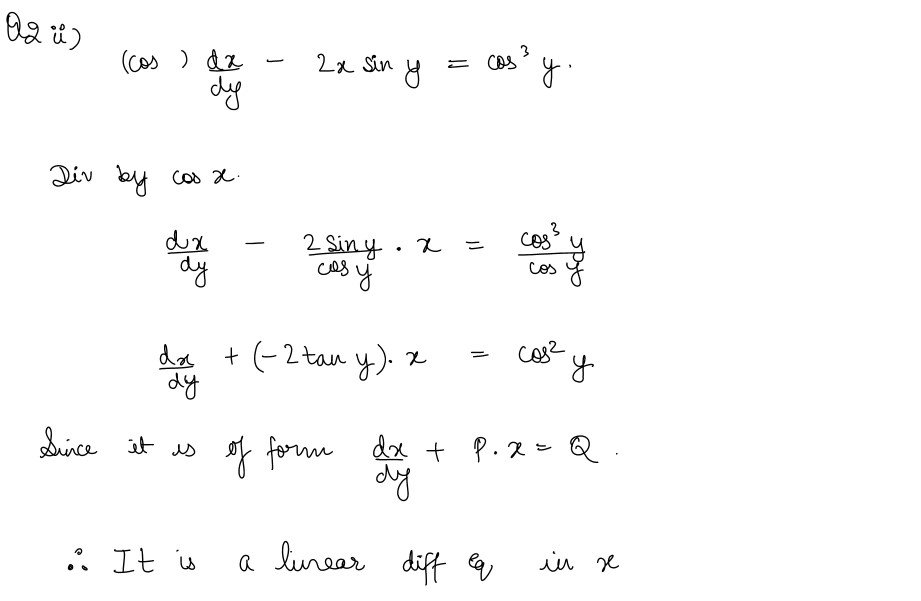 Q2 ii)
(cos ) dx/dy - 2x sin y = cos³ y.
Div by cos x.
dx/dy - 2 sin y/cos y . x = cos³ y/cos y
dx/dy + (-2 tan y). x = cos² y
Since it is of form dx/dy + P. x = Q .
∴ It is a linear diff eq in x